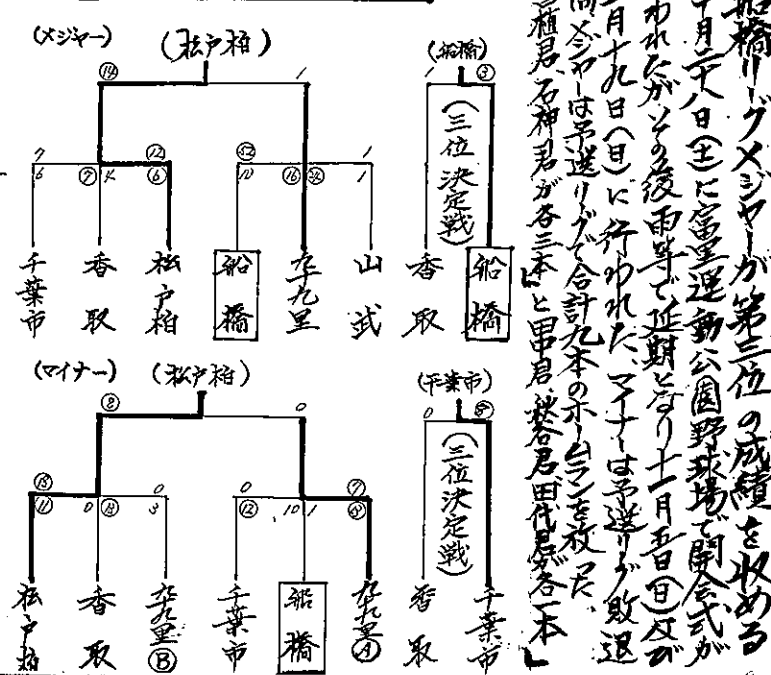 船橋リーグメジャーが第三位の成績を収める
十月二十八日(土)に富里運動公園野球場で開会式が
われたがその後雨等で延期となり十一月五日(日)及び
月十九日(日)に行われた、マイナーは予選リーグ敗退
メジャーは予選リーグで合計九本のホームランを放った、
植君、石神君が各三本と 君、 君田代君が各一本
(メジャー)
(松戸柏)
⑭ 1
7 6 ⑦ 4 ⑫ ⑥
10 ⑯ 1 1
千葉市
香取
松戸柏
船橋
九十九里
山武
(船橋)
1 ③
(三位決定戦)
香取
船橋
(マイナー)
(松戸柏)
⑧ 0
⑪ 0 0 3
0 ⑫ 10 1 ⑦
松戸柏
香取
九十九里Ⓑ
千葉市
船橋
九十九里Ⓐ
(千葉市)
0
(三位決定戦)
香取
千葉市